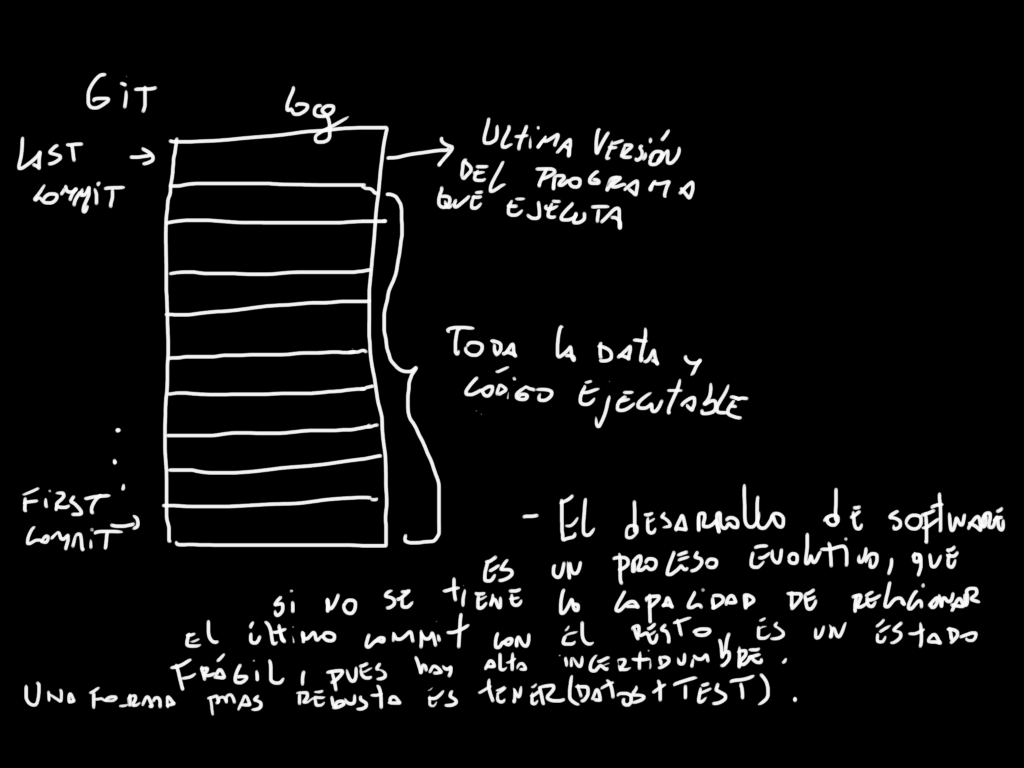 GIT
log
LAST
COMMIT
ULTIMA VERSIÓN
DEL PROGRAMA
QUE EJECUTA
TODA LA DATA Y
CÓDIGO EJECUTABLE
FIRST
COMMIT
- EL DESARROLLO DE SOFTWARE
ES UN PROCESO EVOLUTIVO, QUE
SI NO SE TIENE LA CAPACIDAD DE RELACIONAR
EL ÚLTIMO COMMIT CON EL RESTO, ES UN ESTADO
FRÁGIL, PUES hay alta INCERTIDUMBRE.
UNA FORMA MAS ROBUSTA ES TENER (DATOS + TEST).